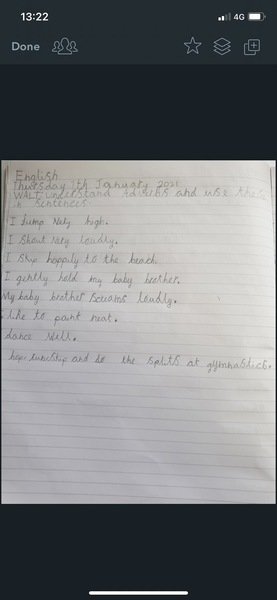 13:22
4G
Done
English
Thursday 7th January 2021
WALT understand adverbs and use them
in sentences.
I jump very high.
I shout very loudly.
I skip happily to the beach
I gently hold my baby brother.
My baby brother screams loudly.
like to paint neat.
dance well.
and do the splits at gymnastics.